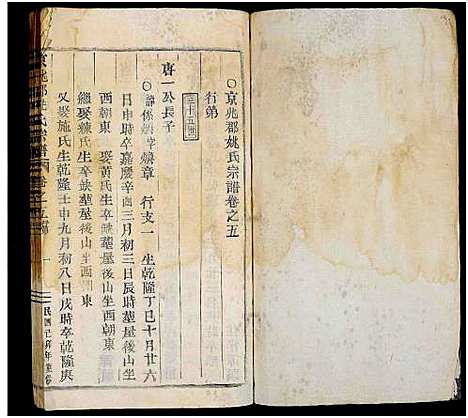 〇京兆郡姚氏宗譜卷之五
行第
三十五世
唐一公長子
行支一 生乾隆丁巳十月廿六
日申時卒嘉慶辛酉三月初三日辰時葬屋後山坐
西朝東 娶黃氏生卒缺葬屋後山坐西朝東
繼娶練氏生卒缺葬屋後山坐西朝東
又娶施氏生乾隆壬申九月初八日戌時卒乾隆庚
京兆郡姚氏宗譜 卷之五
一